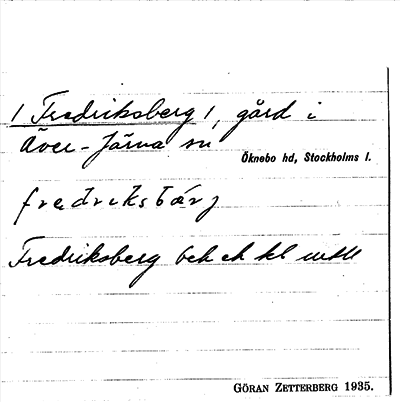 / Fredriksberg /, gård i
Över-Järna sn
Öknebo hd, Stockholms l.
fredriksbärj
Fredriksberg bek ek kl
GÖRAN ZETTERBERG 1935.